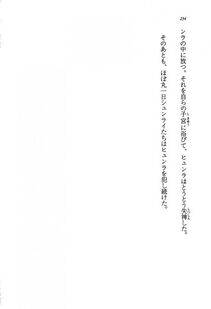 294
ンラの中に放つ。それを自らの子宮に浴びて、ヒュンラはとうとう失神した。
そのあとも、ほぼ丸一日シュンライたちはヒュンラを犯し続けた。